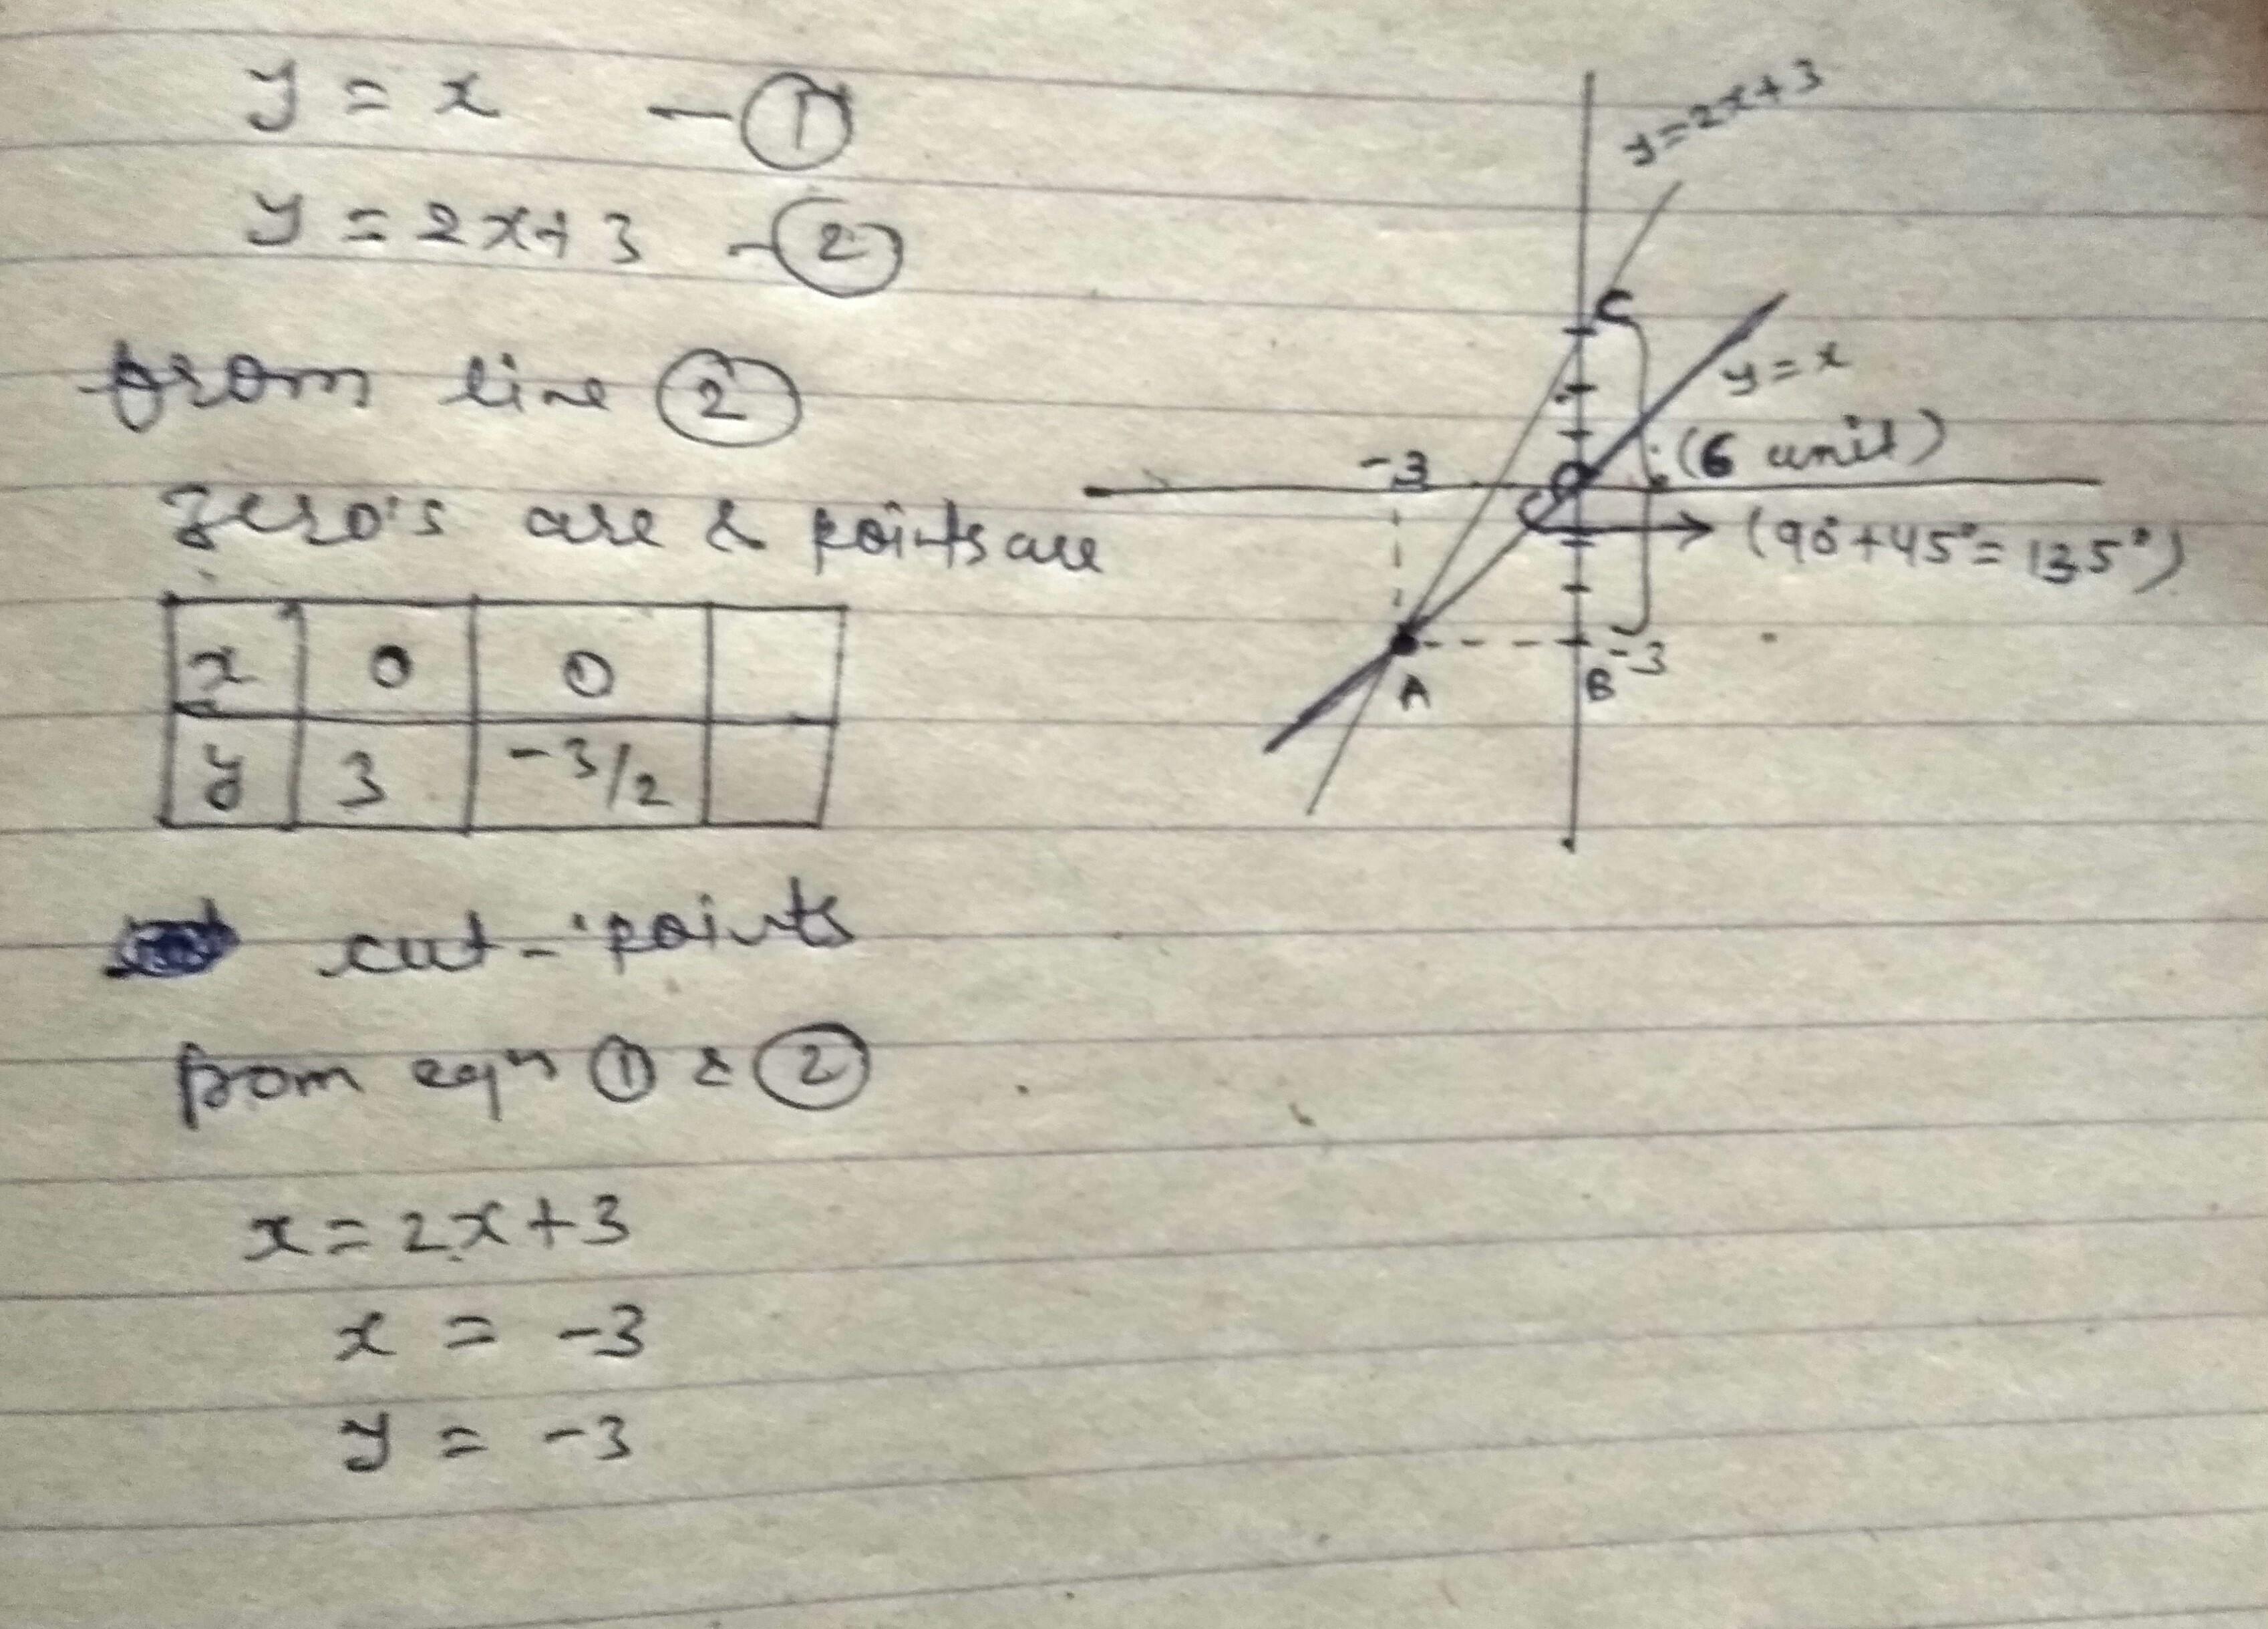 y = x — ①
y = 2x+3 - ②
from line ②
zero's are & points are
x 0 0
y 3 -3/2
cut-points
from eqn ① & ②
x = 2x+3
x = -3
y = -3
y=2x+3
C
y=x
-3
(6 unit)
O
(90°+45°=135°)
-3
A
B